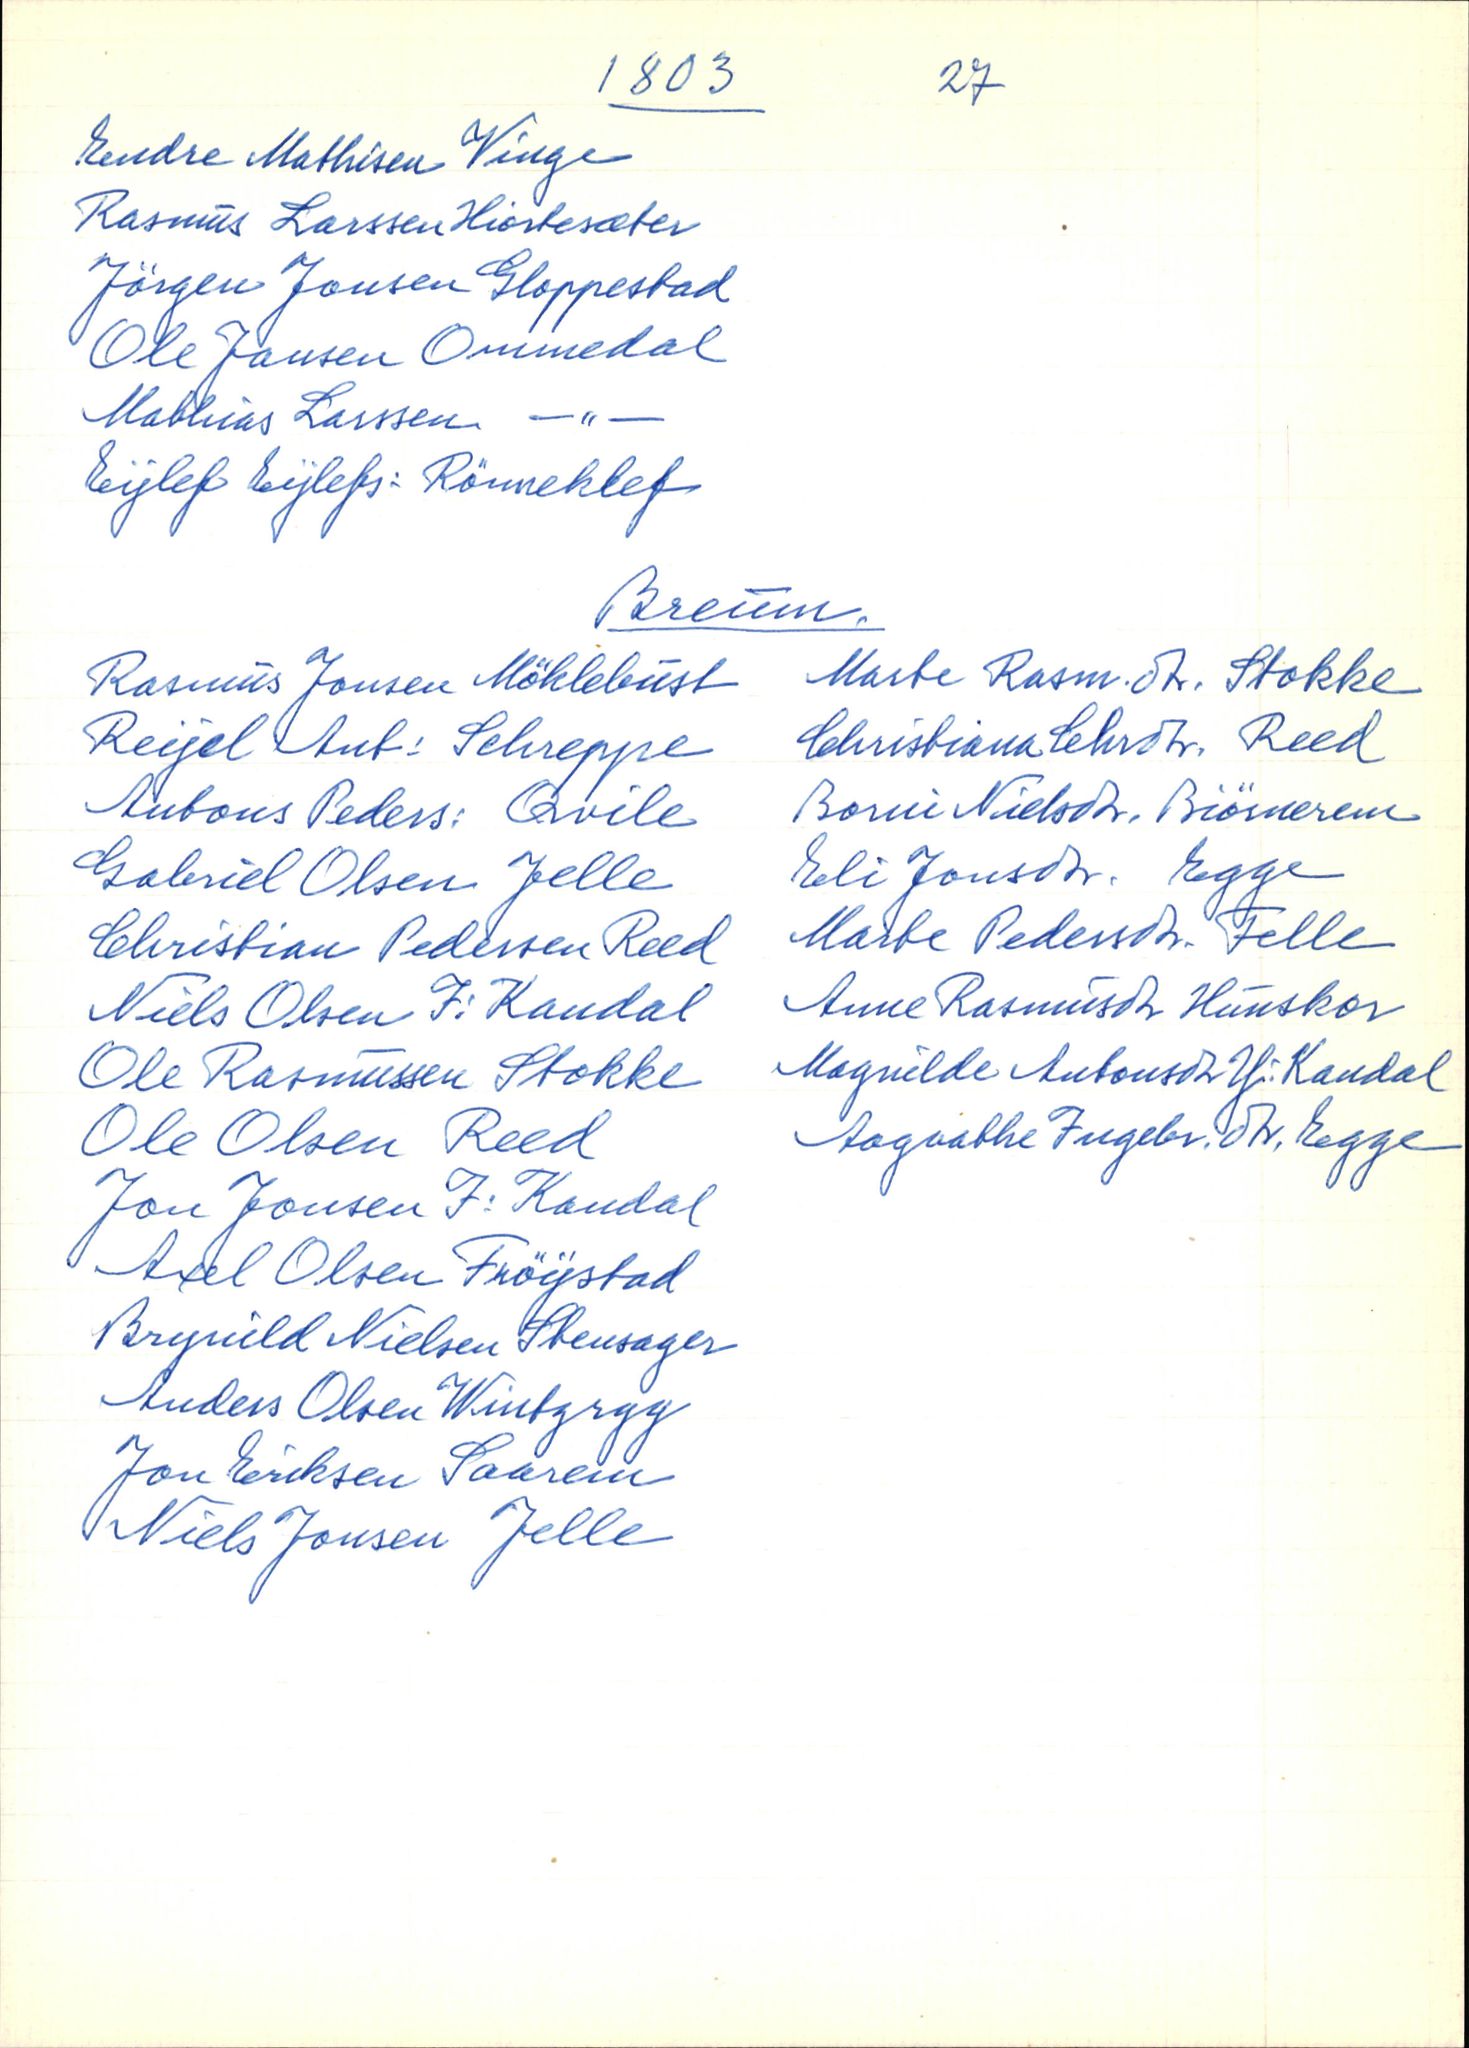 1803 27
Endre Mathisen Vinge
Rasmus Larssen Hiortesæter
Jörgen Jonsen Gloppestad
Ole Jansen Ommedal
Mathias Larssen —"—
Eÿlef Eÿlefs: Rönneklef
Breum.
Rasmus Jonsen Möklebust
Reijel Ant: Schreppe
Antons Peders: Qvile
Gabriel Olsen Felle
Christian Pedersen Reed
Niels Olsen F: Kandal
Ole Rasmussen Stokke
Ole Olsen Reed
Jon Jonsen F: Kandal
Axel Olsen Fröÿstad
Brynild Nielsen Stensager
Anders Olsen
Jon Eriksen Saarem
Niels Jonsen Felle
Marte Rasm.dtr. Stokke
Christiana Chrdtr. Reed
Borni Nielsdtr. Biörnerem
Eli Jonsdtr. Egge
Marte Pedersdtr. Felle
Anne Rasmusdtr Hunskor
Magnilde Antonsdtr Kandal
Aagaathe Ingebr.dtr. Egge